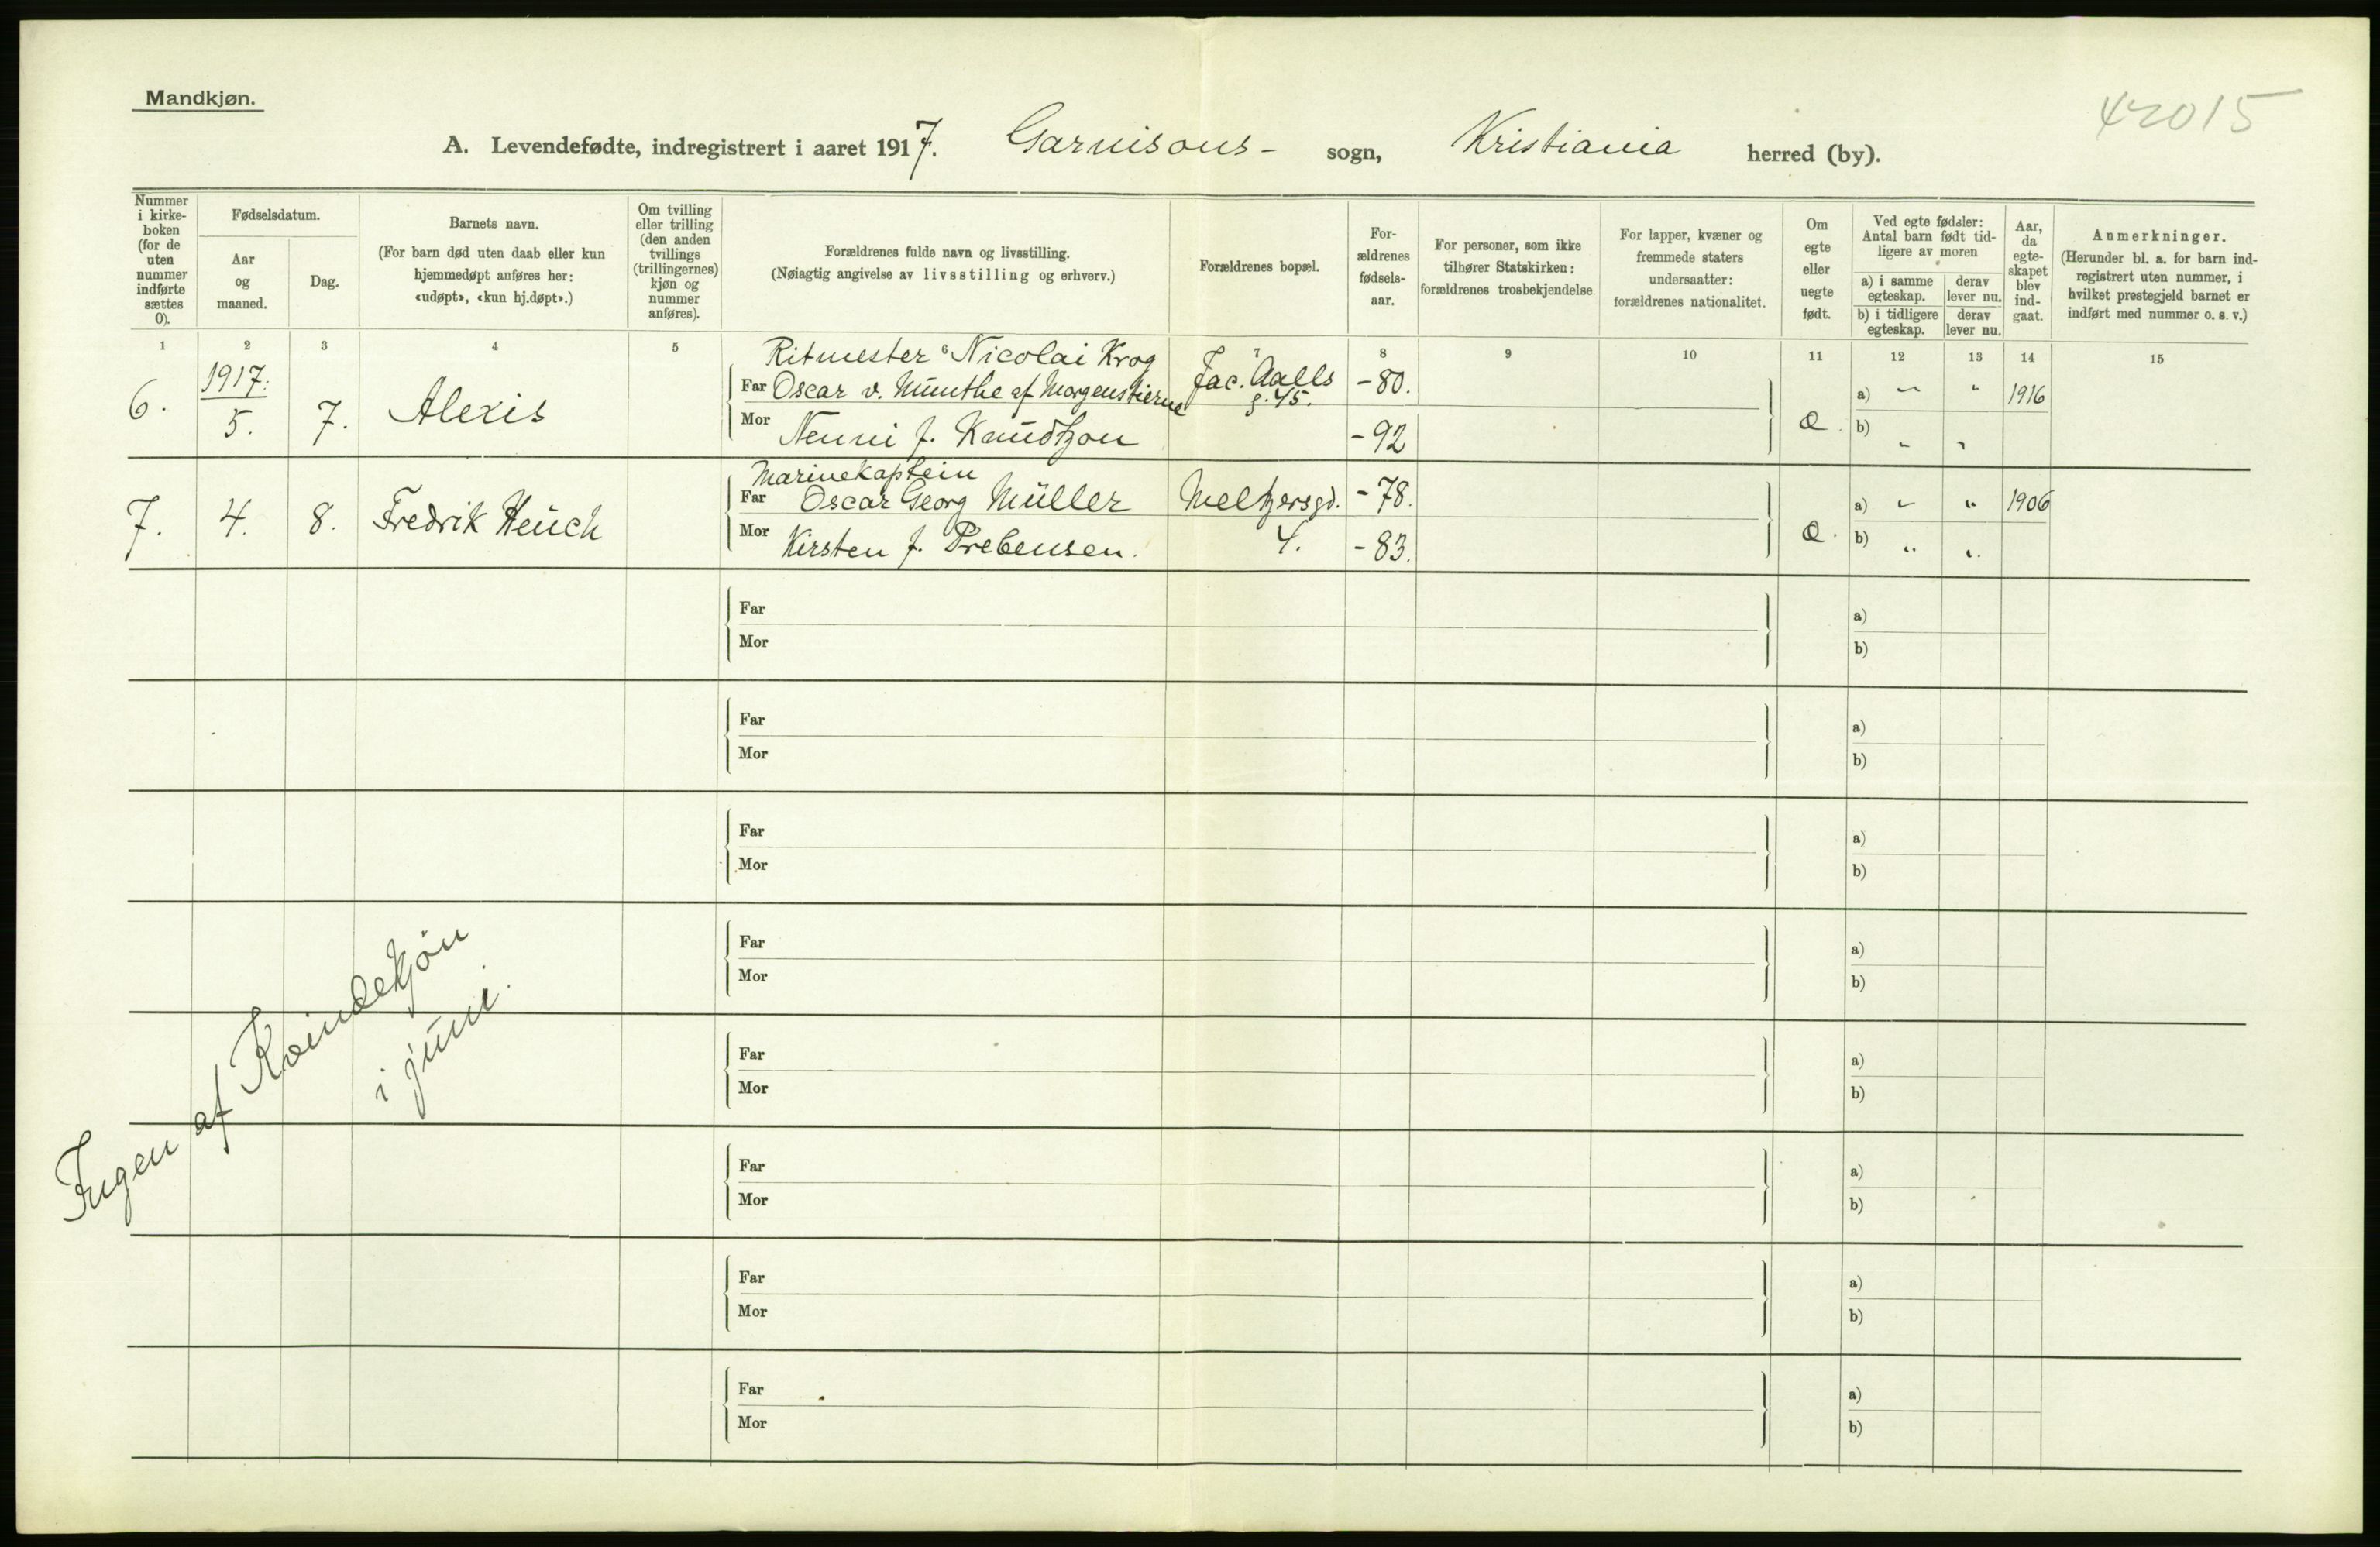 Mandkjøn.
42015
A. Levendefødte, indregistrert i aaret 1917. Garnisons- sogn, Kristiania herred (by).
Nummer i kirke-boken (for de uten nummer indførte sættes 0).
Fødselsdatum.
Aar og maaned.
Dag.
Barnets navn.
(For barn død uten daab eller kun hjemmedøpt anføres her: «udøpt», «kun hj.døpt».)
Om tvilling eller trilling (den anden tvillings (trillingernes) kjøn og nummer anføres).
Forældrenes fulde navn og livsstilling.
(Nøiagtig angivelse av livsstilling og erhverv.)
Forældrenes bopæl.
For-ældrenes fødsels-aar.
For personer, som ikke tilhører Statskirken: forældrenes trosbekjendelse
For lapper, kvæner og fremmede staters undersaatter: forældrenes nationalitet.
Om egte eller uegte født.
Ved egte fødsler: Antal barn født tid-ligere av moren
a) i samme egteskap.
derav lever nu.
b) i tidligere egteskap.
derav lever nu.
Aar, da egte-skapet blev ind-gaat.
Anmerkninger.
(Herunder bl. a. for barn ind-registrert uten nummer, i hvilket prestegjeld barnet er indført med nummer o. s. v.)
1 2 3 4 5 6 7 8 9 10 11 12 13 14 15
Ritmester Nicolai Krog
6. 1917. 5. 7. Alexis Far Oscar v. Munthe af Morgenstierne Jac. Aalls g. 45. -80. Æ. a) " " 1916
Mor Nenni f. Knudtzon -92 b) " "
Marinekaptein
7. 4. 8. Fredrik Heuch Far Oscar Georg Müller Meltzersgd. -78. Æ. a) " " 1906
Mor Kirsten f. Prebensen. 4. -83. b) " "
Far a)
Mor b)
Far a)
Mor b)
Far a)
Mor b)
Far a)
Mor b)
Far a)
Mor b)
Far a)
Mor b)
Far a)
Mor b)
Far a)
Mor b)
Ingen af Kvindekjøn
i juni.